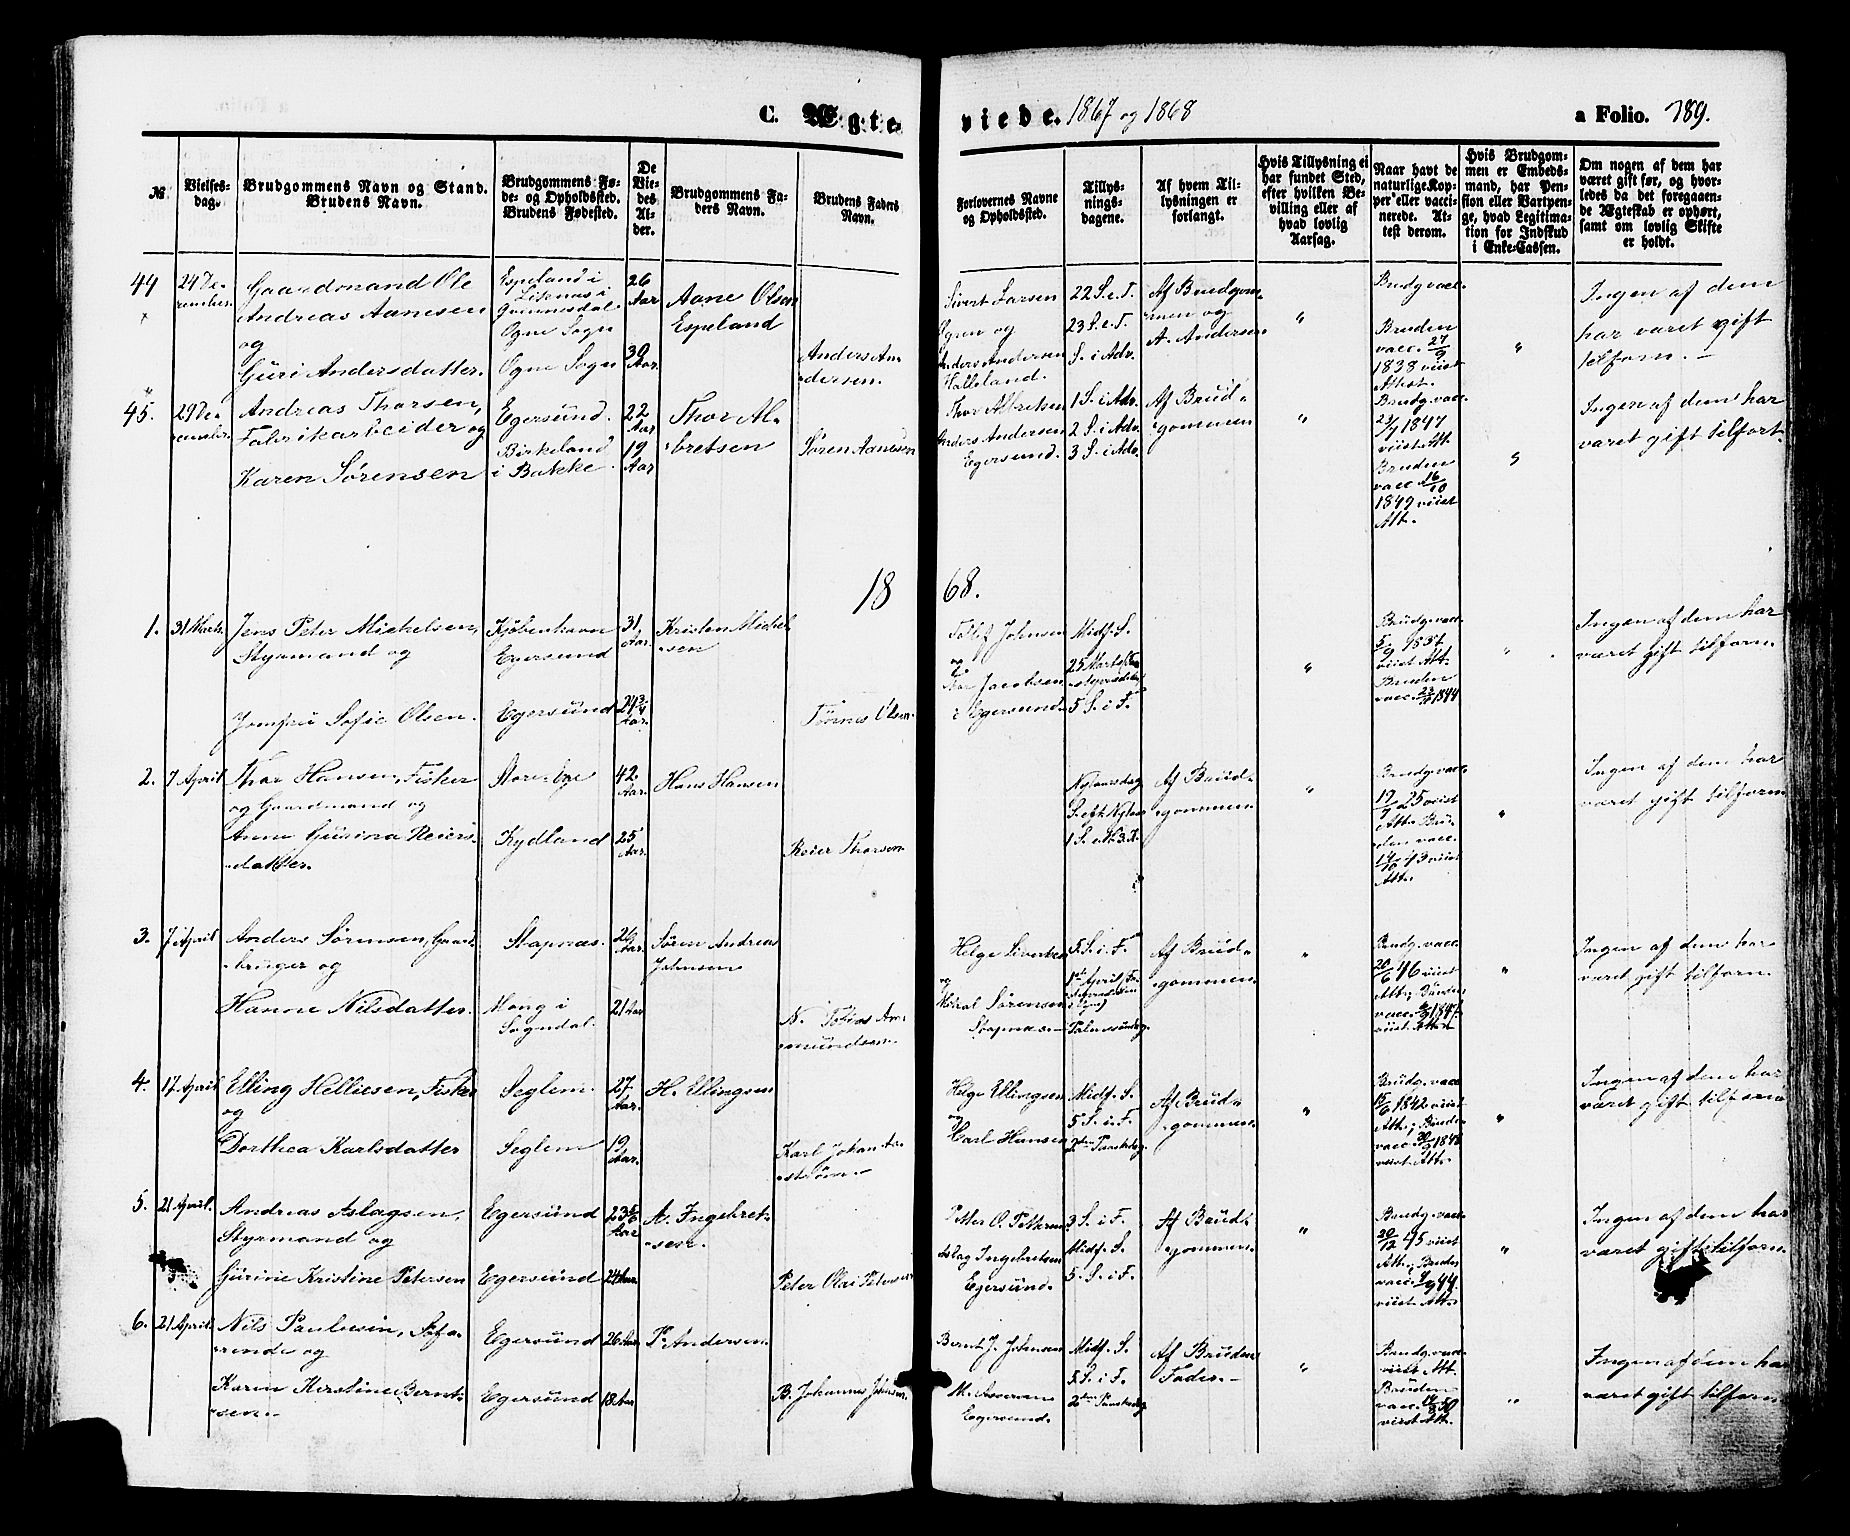 C. Ægte-
viede. 1867 og 1868
a Folio. 189.
№
Vielses-
dag.
Brudgommens Navn og Stand.
Brudens Navn.
Brudgommens Fø-
de- og Opholdssted.
Brudens Fødested.
De
Vie-
des
Al-
der.
Brudgommens Fa-
ders Navn.
Brudens Faders
Navn.
Forlovernes Navne
og Opholdssted.
Tillys-
nings-
dagene.
Af hvem Til-
lysningen er
forlangt.
Hvis Tillysning ei
har fundet Sted,
efter hvilken Be-
villing eller af
hvad lovlig
Aarsag.
Naar havt de
naturlige Kop-
per eller vacci-
nerede. At-
test derom.
Hvis Brudgom-
men er Embeds-
mand, har Pen-
sion eller Vartpen-
ge, hvad Legitima-
tion for Indskud
i Enke-Cassen.
Om nogen af dem har
været gift før, og hvor-
ledes da det foregaaen-
de Ægteskab er ophørt,
samt om lovlig Skifte
er holdt.
44
24 De-
cember.
Gaardmand Ole
Andreas Aanesen
og
Guri Andersdatter.
Espeland i
Liknæs i
Ogne Sogn
Ogne Sogn
26
Aar
30
Aar.
Aane Olsen
Espeland
Anders An-
dersen.
Sivert Larsen
og
Anders Andersen
Halleland.
22 S. e. T.
23 S. e. T.
S. i Adv.
Af Brudgom-
men og
A. Andersen
"
Brudg. vacc.
Bruden
vacc. 27/9
1838 viist
Attest.
"
Ingen af dem
har været gift
tilforn. —
45.
29 De-
cember.
Andreas Thorsen,
Fabrikarbeider og
Karen Sørensen
Egersund.
Birkeland
i Bakke.
22
Aar
19
Aar
Thor Al-
bretsen
Søren Aanesen
Thor Albretsen
Anders Andersen
Egersund.
1 S. i Adv.
2 S. i Adv.
3 S. i Adv.
Af Brud-
gommen
"
Brudg. vacc.
23/9 1847
viist Att.
Bruden
vacc. 16/10
1849 viist
Att.
Ingen af dem har
været gift tilforn.
1868.
1.
31 Marts.
Jens Peter Michelsen,
Styrmand og
Jomfru Sofie Olsen.
Kjøbenhavn
Egersund
Egersund
31.
Aar.
24 3/4
Aar.
Kristen Michel-
sen
Tønnes Olsen.
Johnsen
og
Jacobsen
i Egersund.
Midf. S.
25 Marts
5 S. i F.
"
Brudg. vacc.
5/9 1837
viist Att.
Bruden
vacc. 23/9 1844
"
Ingen af dem har
været gift tilforn.
2.
7 April
Thor Hansen, Fisker
og Gaardmand og
Anne Gurina Reiers-
datter.
Kydland
42.
Aar.
25
Aar.
Hans Hansen
Reier Thorsen
Nytaarsdag
S. eft. Nytaar
1 S. e. H. 3. K.
Af Brud-
gommen
"
Brudg. vacc.
19/9 25 viist
Att. Bru-
den vacc.
14/10 43 viist
Att.
"
Ingen af dem har
været gift tilforn
3.
7 April
Anders Sørensen, Gaard-
bruger og
Hanne Nilsdatter.
Stapnæs.
Mong i
Sogndal.
26
Aar.
21 Aar
Søren Andreas
Johnsen
N. Tobias Aa-
mundsen.
Helge Sivertsen
og
Sørensen
Stapnæs.
5. S. i F.
1ste April,
Palmesøndag.
Af Brud-
gommen
"
Brudg. vacc.
20/6 46 viist
Att., Bruden
vacc. 1847.
viist Att.
"
Ingen af dem har
været gift tilforn.
4.
17 April
Elling Helliesen, Fisker
og
Dorthea Karlsdatter
Seglem.
Seglem
27
Aar.
19
Aar.
H. Ellingsen
Karl Johan
Helge Ellingsen
og
Carl Hansen
Midf. S.
5 S. i F.
2den Paaskedag.
Af Brud-
gommen.
"
Brudg. vacc.
15/6 1842 viist
Att., Bruden
vacc. 30/9 1848
viist Att.
"
Ingen af dem har
været gift tilforn
5.
21 April.
Andreas Aslagsen,
Styrmand og
Gurine Kristine Petersen
Egersund
Egersund
23 5/6
Aar
24 Aar.
A. Ingebret-
sen.
Peter Olai Petersen
Petter O. Pettersen
Aslag Ingebretsen
Egersund.
3 S. i F.
Midf. S.
5. S. i F.
Af Brud-
gommen.
"
Brudg. vacc.
20/12 45 viist
Att. Bruden
vacc. 44.
viist Att.
"
Ingen af dem har
været gift tilforn.
6.
21 April.
Nils Paulusen, Søfa-
rende og
Karen Kerstine Bernt-
sen.
Egersund
Egersund
26 Aar
18 Aar
P. Andersen.
B. Johannes Johnsen.
Bernt J. Johnsen
M. Aaseræn
Egersund.
Midf. S.
5 S. i F.
2den Paaskedag
Af Brudens
Fader.
"
Brudg. vacc.
viist Att
Bruden
vacc. 14/8 50
viist Att.
"
Ingen af dem har
været gift tilforn